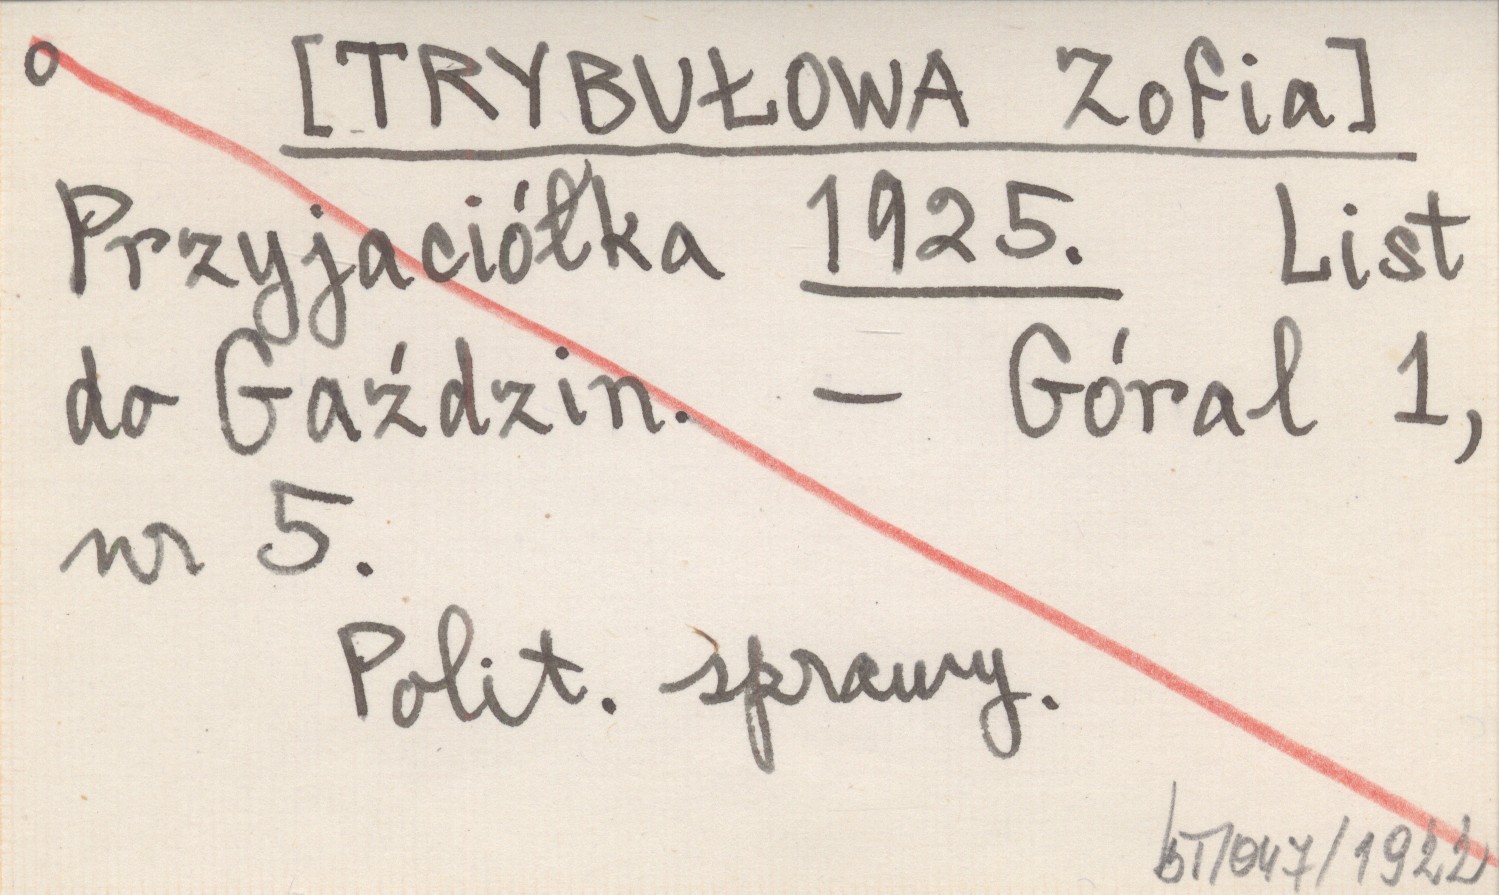 o [TRYBUŁOWA Zofia]
Przyjaciółka 1925. List
do Gaździn. – Góral 1,
nr 5.
Polit. sprawy.
BT/047/1922